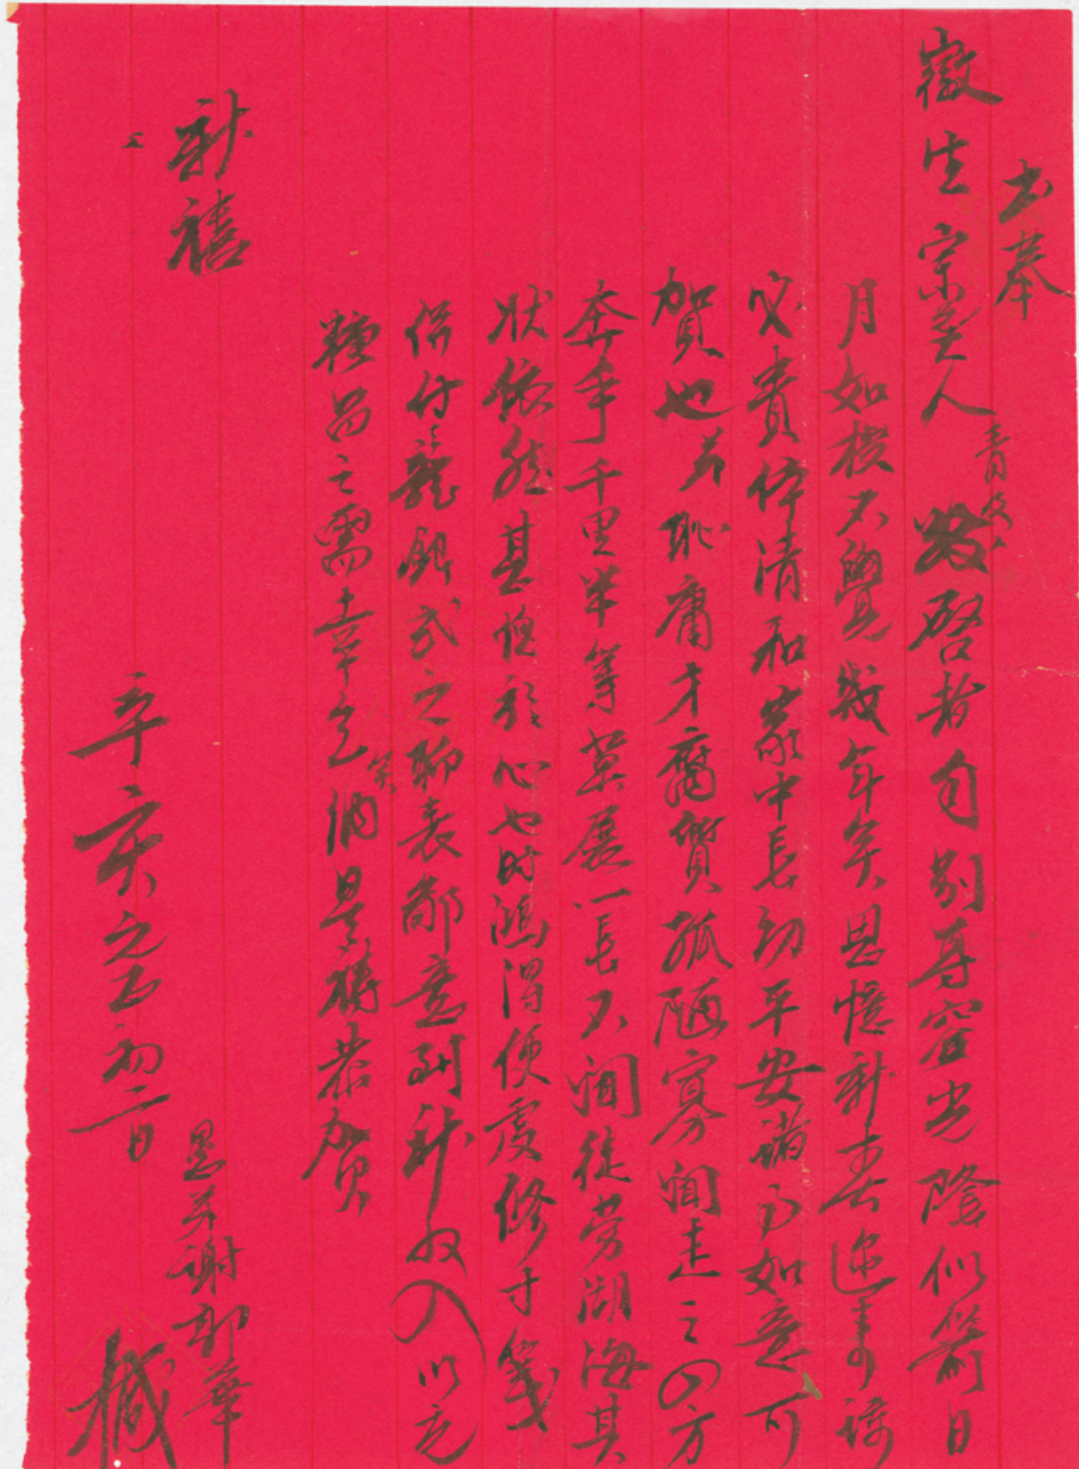 書奉
徽生宗美人青及 敬啓者自別尊容光陰似箭日
月如梭不覺幾年矣思憶新春迎來可
必貴体清和家中長幼平安諸事如意可
賀也弟耻庸才腐質孤陋寡聞走之四方
奔手千里半等莫展一長不聞徒勞湖海其
狀依然甚愧於心也時鴻得便虔修寸箋
保付龍銀弍之聊表鄙意到祈收入以充
糖品之需幸笑納是禱恭賀
新禧
辛亥之正初二日
愚弟謝郁華
械